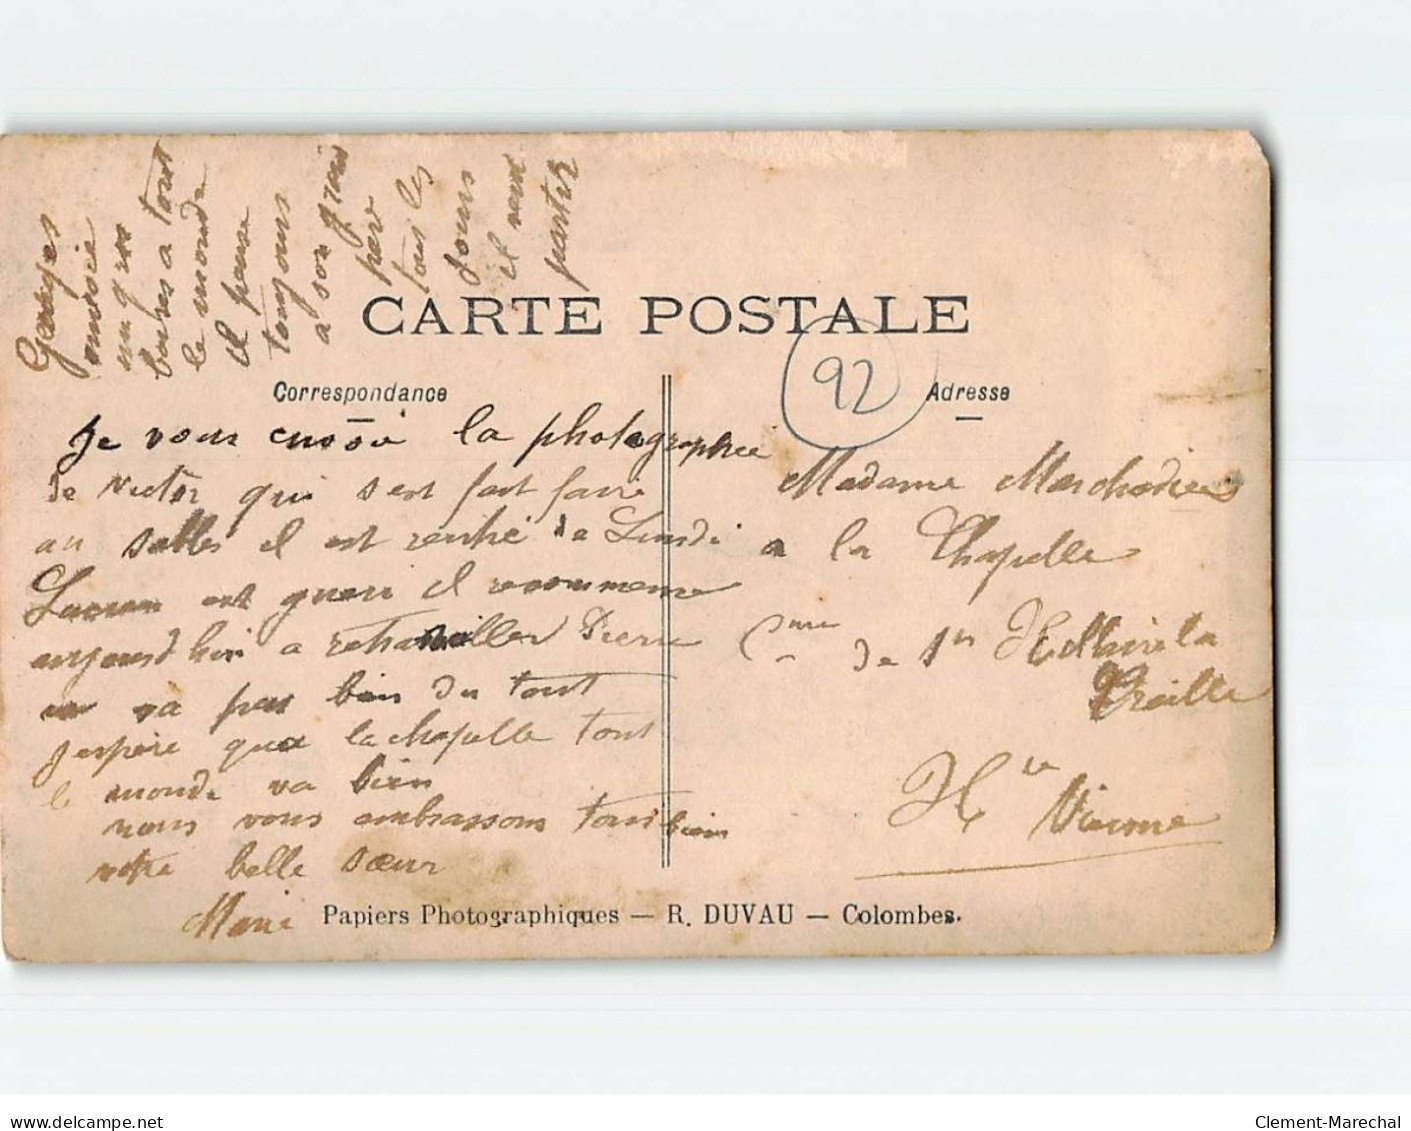 Georges
envoie
un gros
baisers a tout
le monde
il pense
toujours
a son grand
per
tous les
jours
il veut
partir
CARTE POSTALE
92
Correspondance
Adresse
Je vous envoie la photographie
de Victor qui s est fait faire
au Sables il est rentré de Lundi
est gueri il recommence
aujourd hui a retravailler Pierre
va pas bien du tout
j espère que a la chapelle tout
le monde va bien
nous vous embrassons tous bien
votre belle sœur
Marie
Madame Marchadier
a la Chapelle
Cme de St Hillaire la
Treille
Hte Vienne
Papiers Photographiques — R. DUVAU — Colombes.
delcampe.net
Clement-Marechal